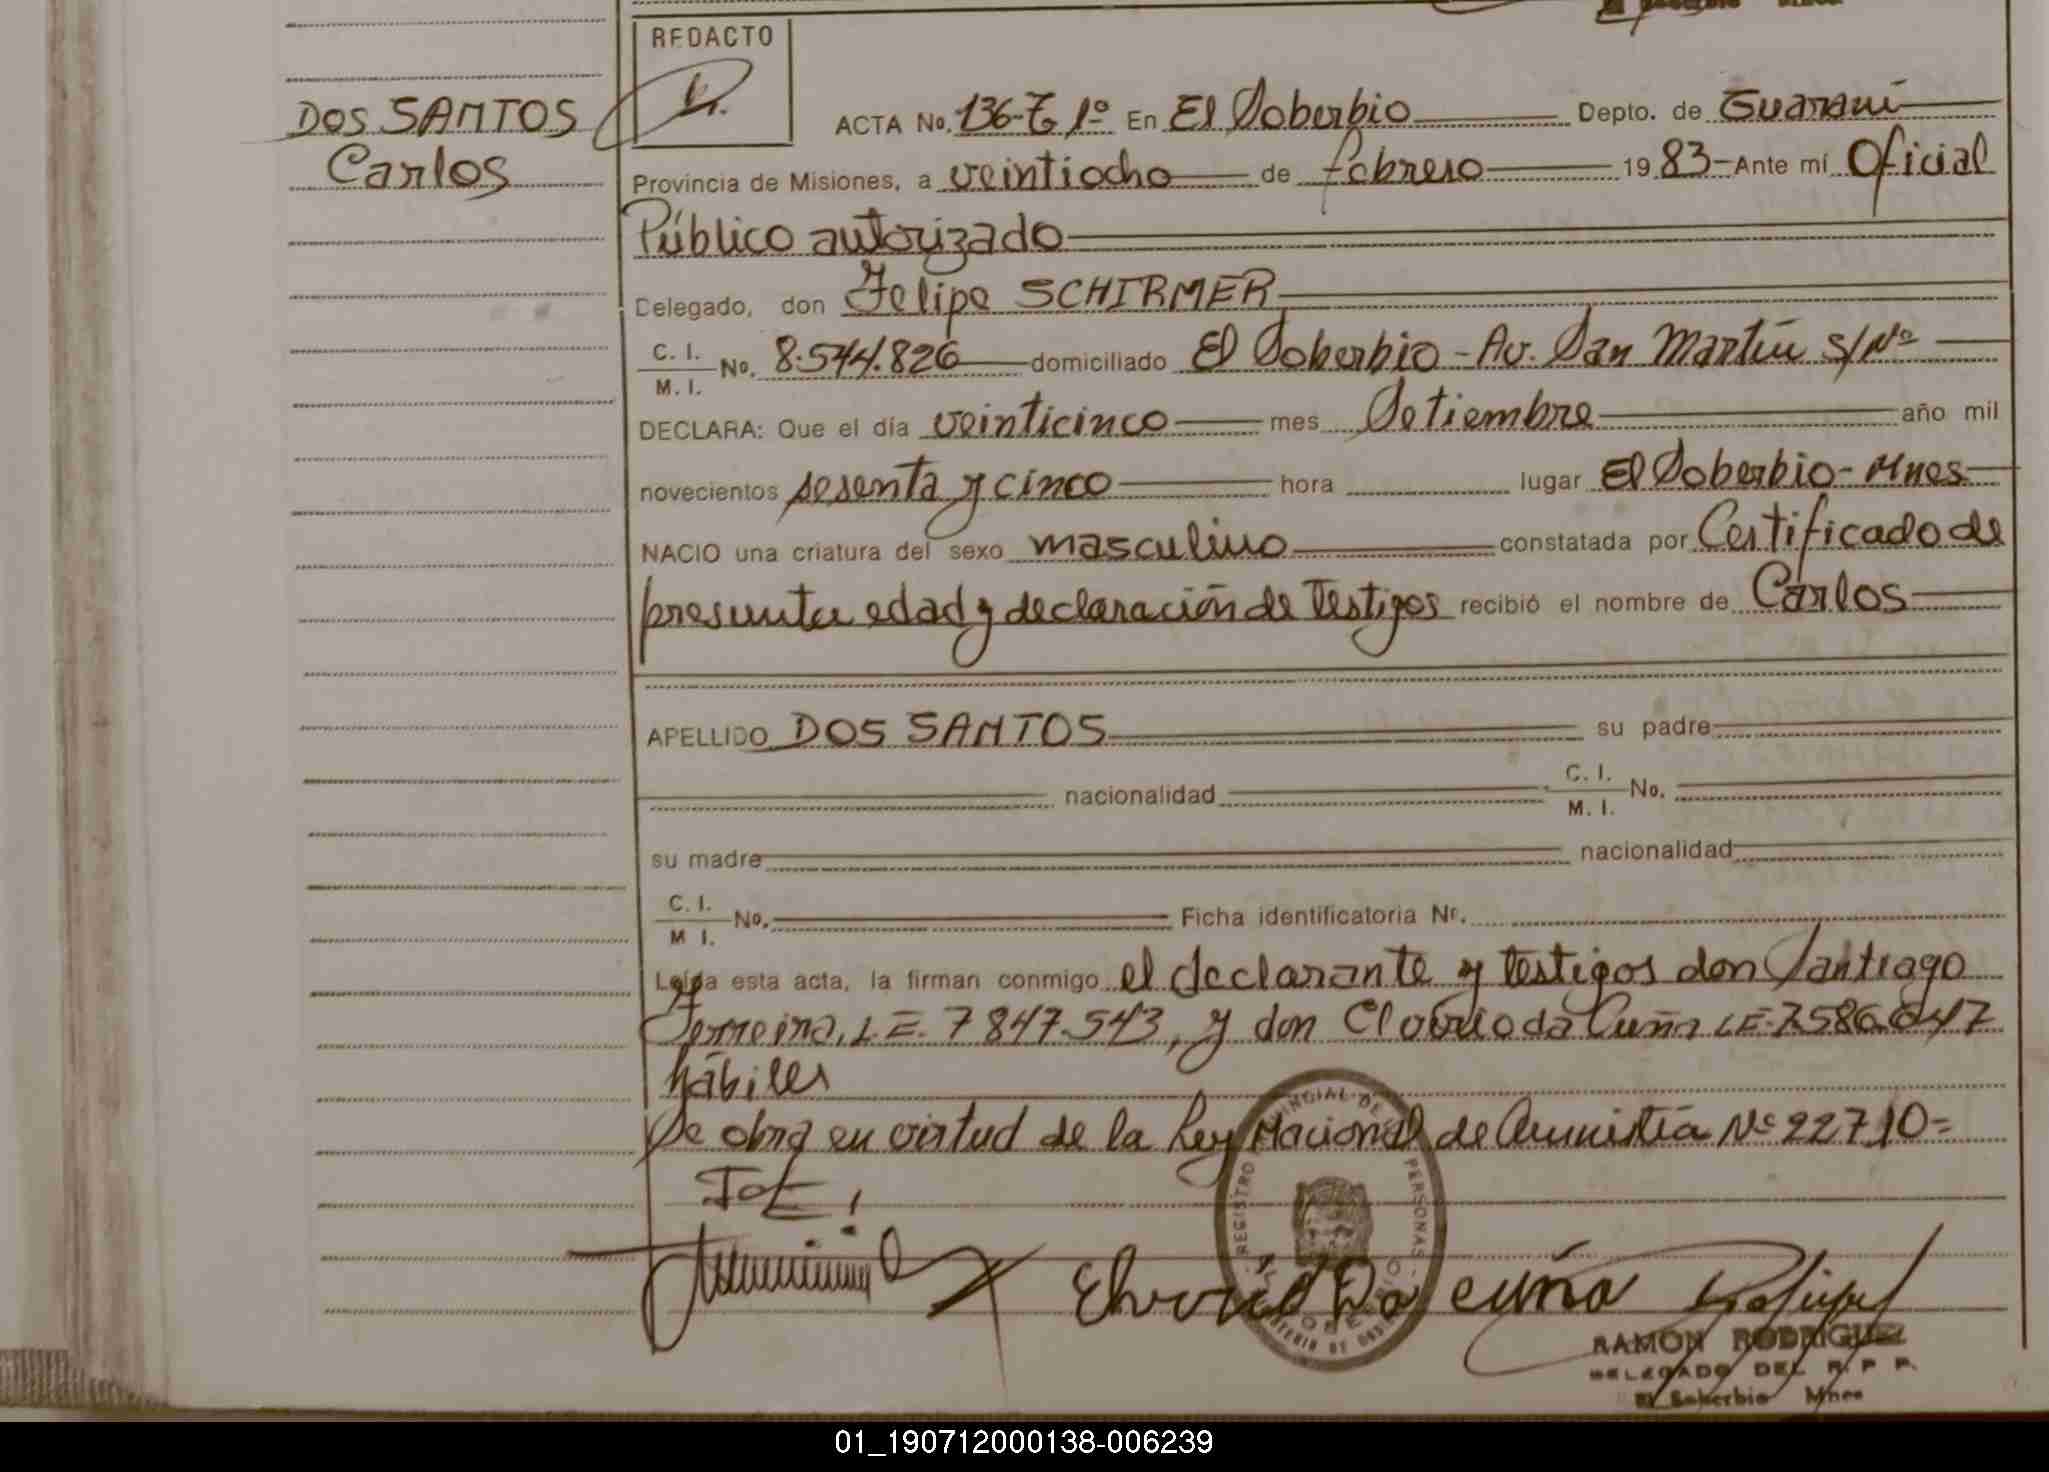 REDACTO
DOS SANTOS
Carlos
ACTA No. 136-T 1º En El Soberbio Depto. de Guaraní
Provincia de Misiones, a veintiocho de febrero 1983- Ante mí Oficial
Público autorizado
Delegado, don Felipe SCHIRMER
C. I. / M. I. No. 8.544.826 domiciliado El Soberbio - Av. San Martín s/Nº
DECLARA: Que el día veinticinco mes Setiembre año mil
novecientos sesenta y cinco hora lugar El Soberbio - Mnes
NACIO una criatura del sexo masculino constatada por Certificado de
presunta edad y declaración de Testigos recibió el nombre de Carlos
APELLIDO DOS SANTOS su padre
nacionalidad C. I. / M. I. No.
su madre nacionalidad
C. I. / M I. No. Ficha identificatoria Nr.
Leída esta acta, la firman conmigo el declarante y testigos don Santiago
Ferreira, L.E. 7847.543, y don Clovrio da Cuña L.E. 7.586.047
hábiles
Se obra en virtud de la Ley Nacional de Amnistía Nº 22710=
REGISTRO PROVINCIAL DE PERSONAS
Da cuña
RAMON RODRIGUEZ
DELEGADO DEL R. P. P.
El Soberbio Mnes
01_190712000138-006239